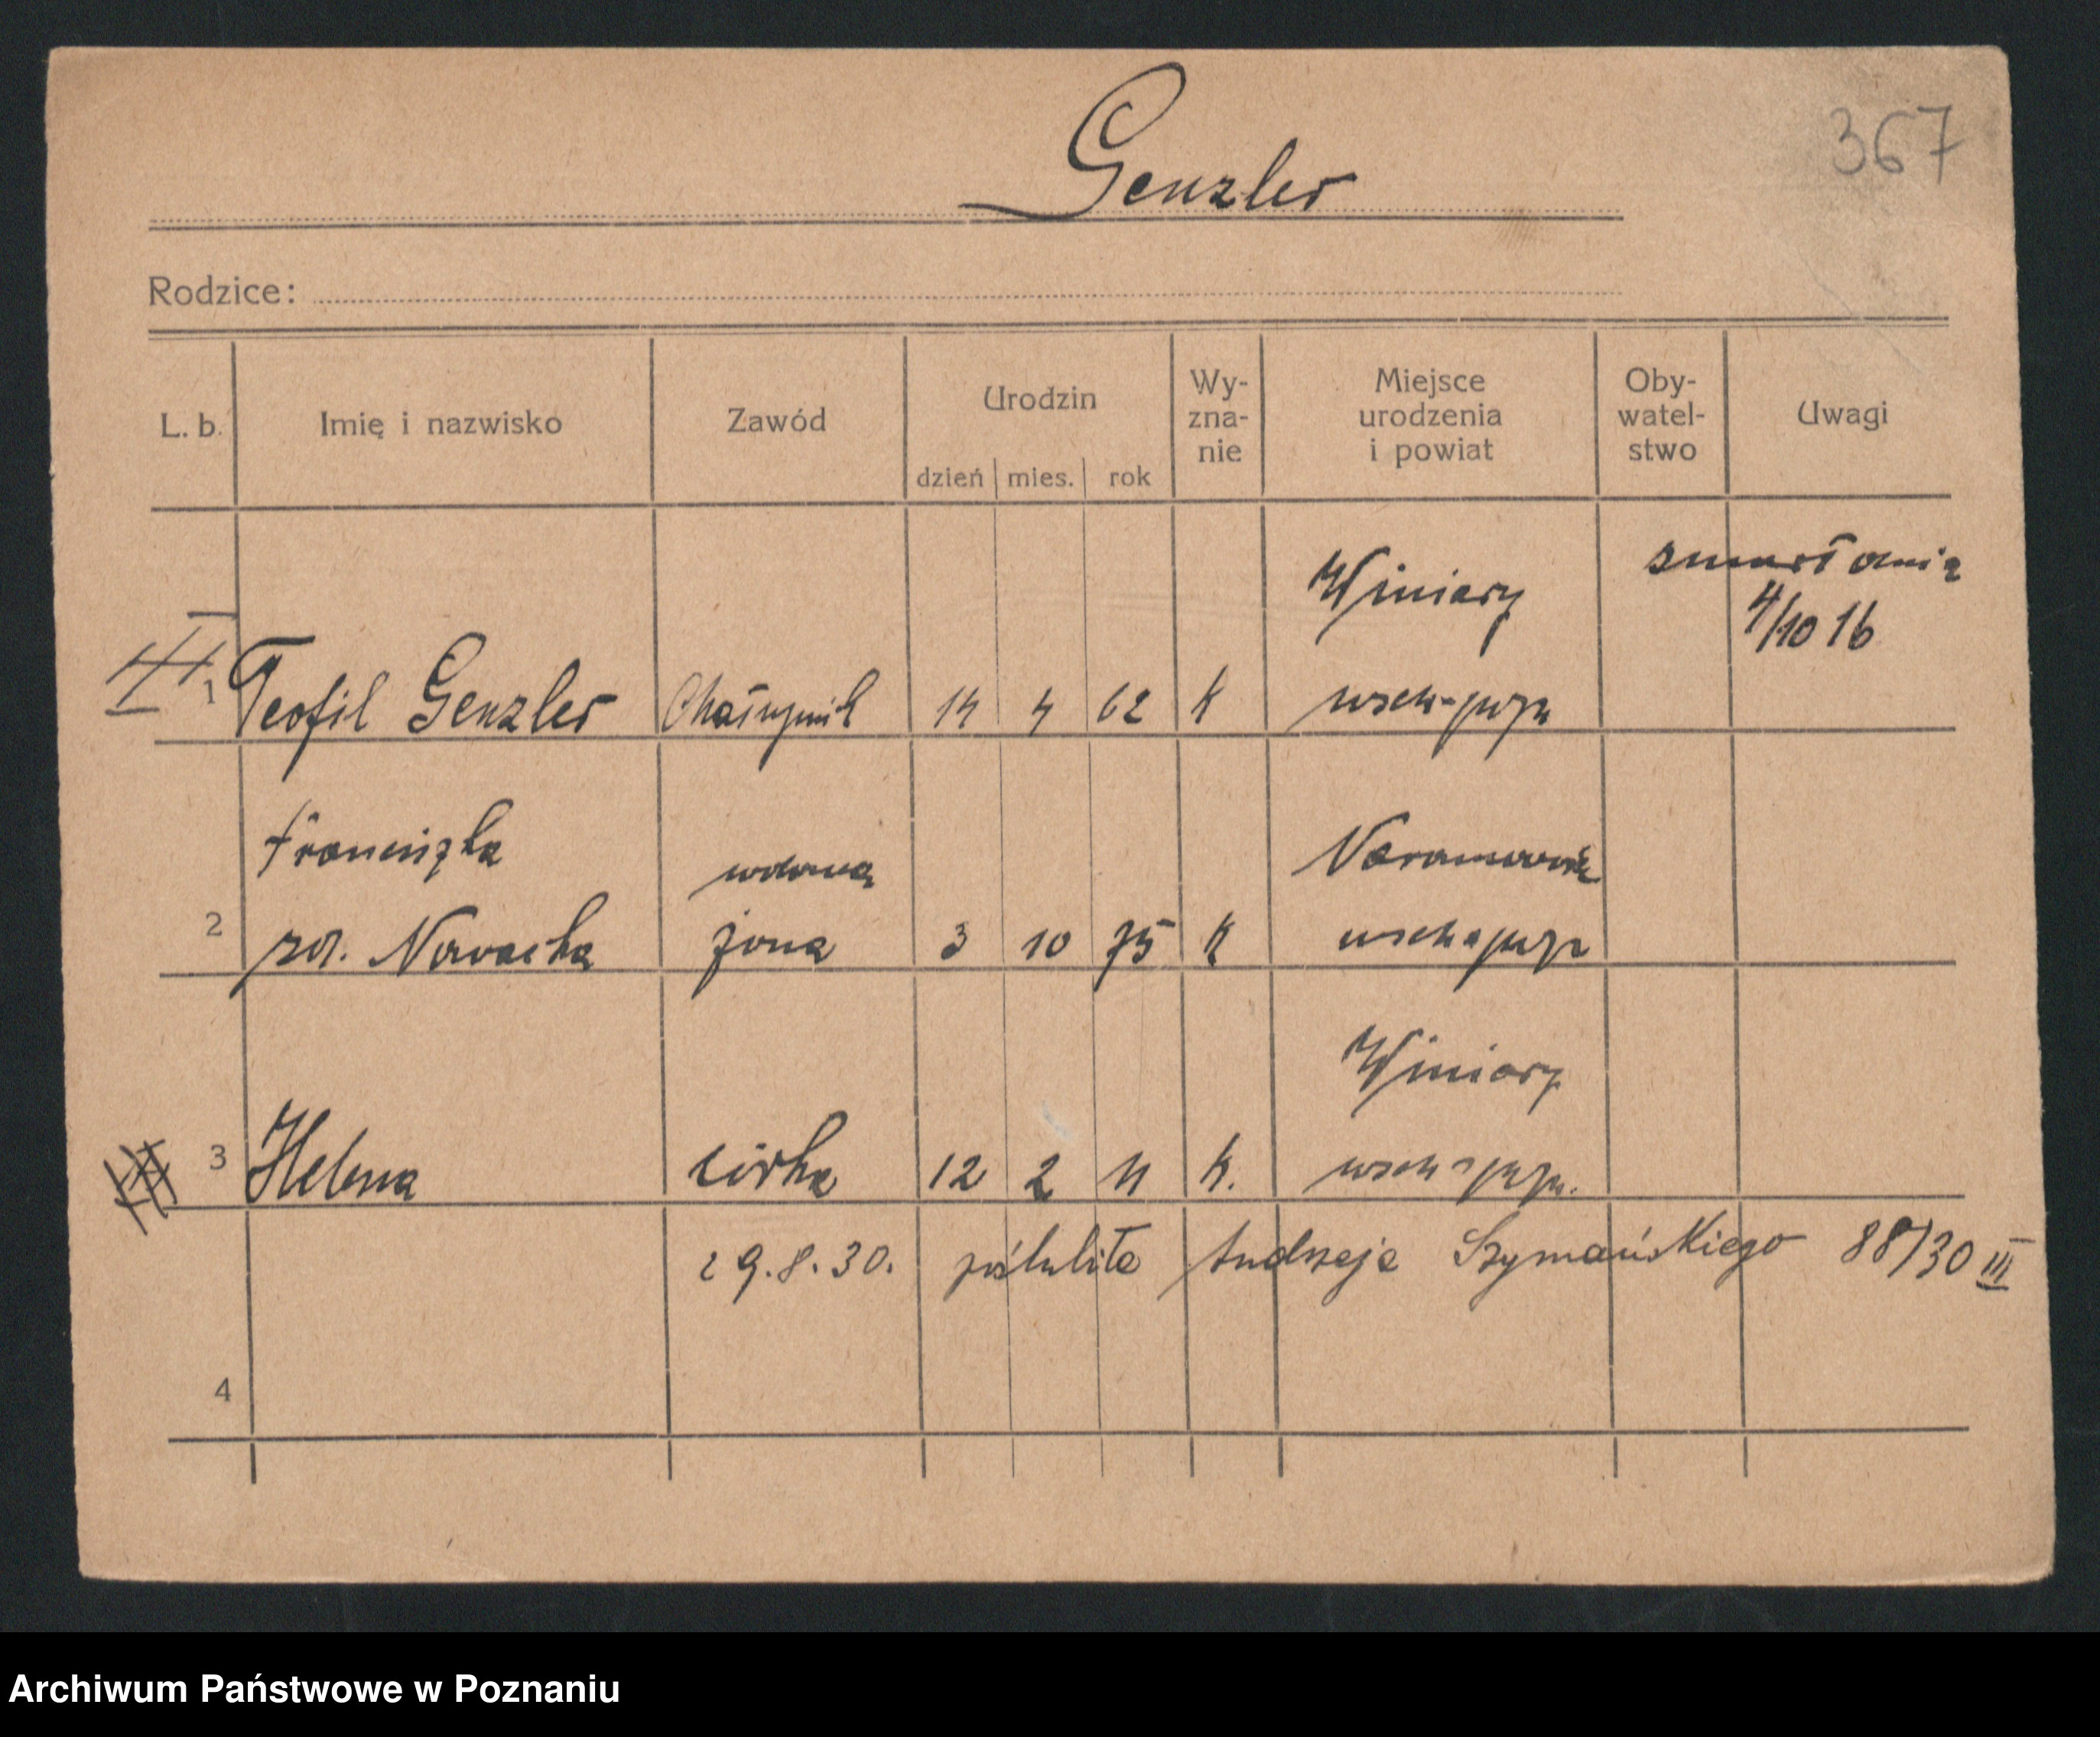 Genzler
367
Rodzice:
L. b. Imię i nazwisko Zawód Urodzin dzień mies. rok Wy-zna-nie Miejsce urodzenia i powiat Oby-watel-stwo Uwagi
Winiary zmarł dnia
4/10 16
1 Teofil Genzler Chałupnik 14 4 62 K wsch-pozn
Franciszka wdowa Naramowice
2 zd. Nowacka żona 3 10 75 K wsch-pozn
Winiary
3 Helena córka 12 2 11 K. wsch-pozn.
29.8.30. poślubiła Andrzeja Szymańskiego 88/30 III
4
Archiwum Państwowe w Poznaniu